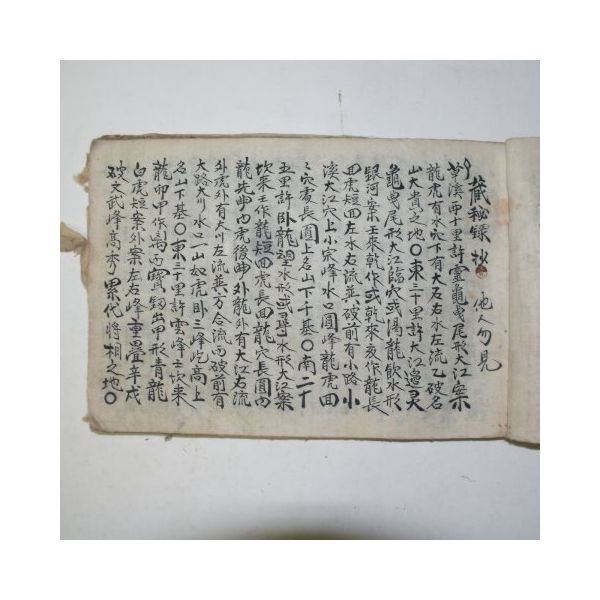 藏秘錄抄 他人勿見
草溪西十里許靈龜曳尾形大江案
龍虎有水穴下有大石右水左流乙破名
山大貴之地〇東三十里許大江邊灵
龜曳尾形大江臨穴或渴龍飮水形
銀河案壬來乾作或乾來亥作龍長
四虎短四左水右流並破前有小路小
溪大江穴上小宗峰水口圓峰龍虎回
穴處長圓上名山下千基〇南二十
五里許卧龍望水形或尋水形大江案
坎來壬作龍短四虎長四龍穴長圓內
龍先申內虎後申外龍外有大江右流
外虎外有大川左流巽方合流丙破前有
大路大川水口一山如虎卧三峰屹高上
名山下基〇東三十里許雲峰士坎來
龍卯甲作丙寶釰出甲形青龍
白虎短案外案左右峰重疊辛戌
破文武峰高秀累代將相之地〇